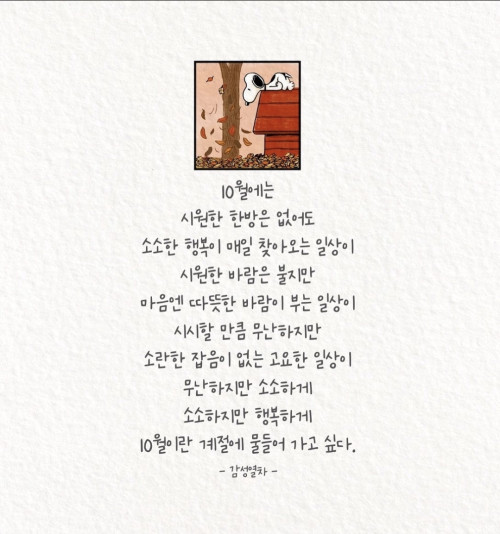 10월에는
시원한 한방은 없어도
소소한 행복이 매일 찾아오는 일상이
시원한 바람은 불지만
마음엔 따뜻한 바람이 부는 일상이
시시할 만큼 무난하지만
소란한 잡음이 없는 고요한 일상이
무난하지만 소소하게
소소하지만 행복하게
10월이란 계절에 물들어 가고 싶다.
- 감성열차 -